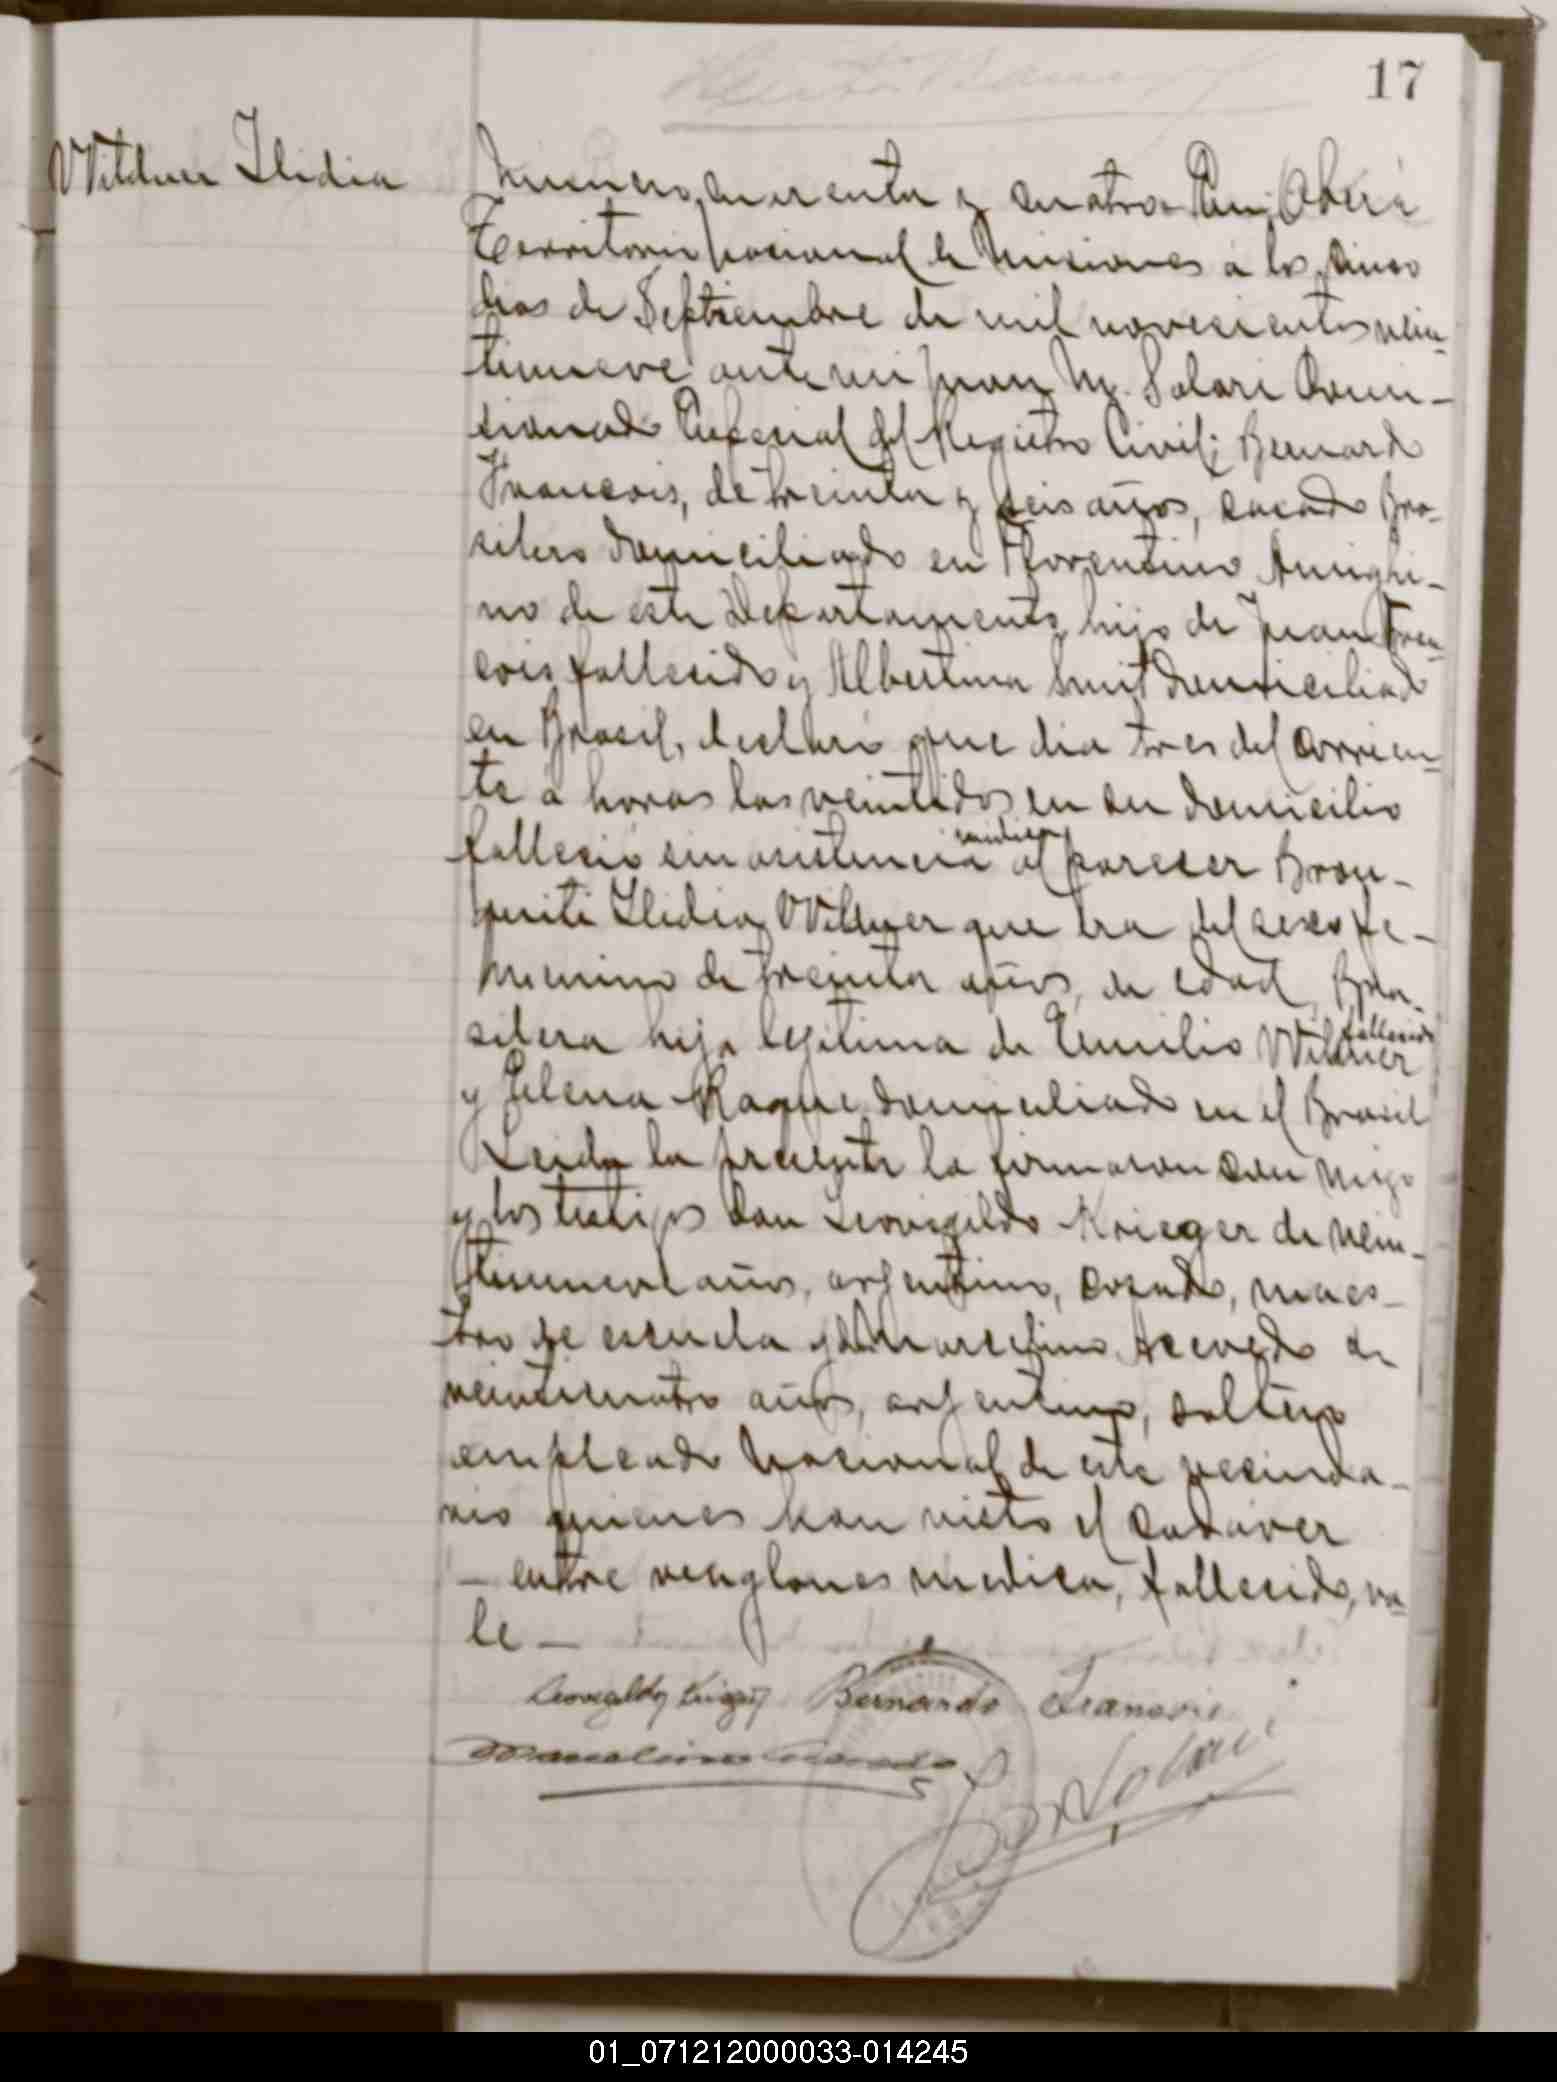 17
Witdner Ilidia
Numero cuarenta y cuatro En Oberá
Territorio Nacional de Misiones á los cinco
dias de Septiembre de mil novecientos vein-
tinueve ante mi Juan M. Solari Comi-
sionado Especial del Registro Civil; Bernardo
Francois, de treinta y seis años, casado Bra-
silero domiciliado en Florentino Ameghi-
no de este Departamento, hijo de Juan Fran-
cois fallecido y Albertina Smit domiciliado
en Brasil, declaró que dia tres del corrien-
te á horas las veintidos en su domicilio
falleció sin asistencia medica al pareser Bron-
quiti Ilidia Witdner que era del sexo fe-
menino de treinta años, de edad, Bra-
silera hija legitima de Emilio Witdner fallecido
y Elena Raque domiciliado en el Brasil
Leida la presente la firmaron con migo
y los testigos Don Leovegildo Krieger de vein-
tinueve años, argentino, casado, maes-
tro de escuela y Marcelino Acevedo de
veinticuatro años, argentino, soltero
empleado Nacional de este vecinda-
rio quienes han visto el cadaver
— entre renglones medica, fallecido, va-
le —
Leovegildo Krieger Bernardo Francois
Marcelino Acevedo
Solari
01_071212000033-014245